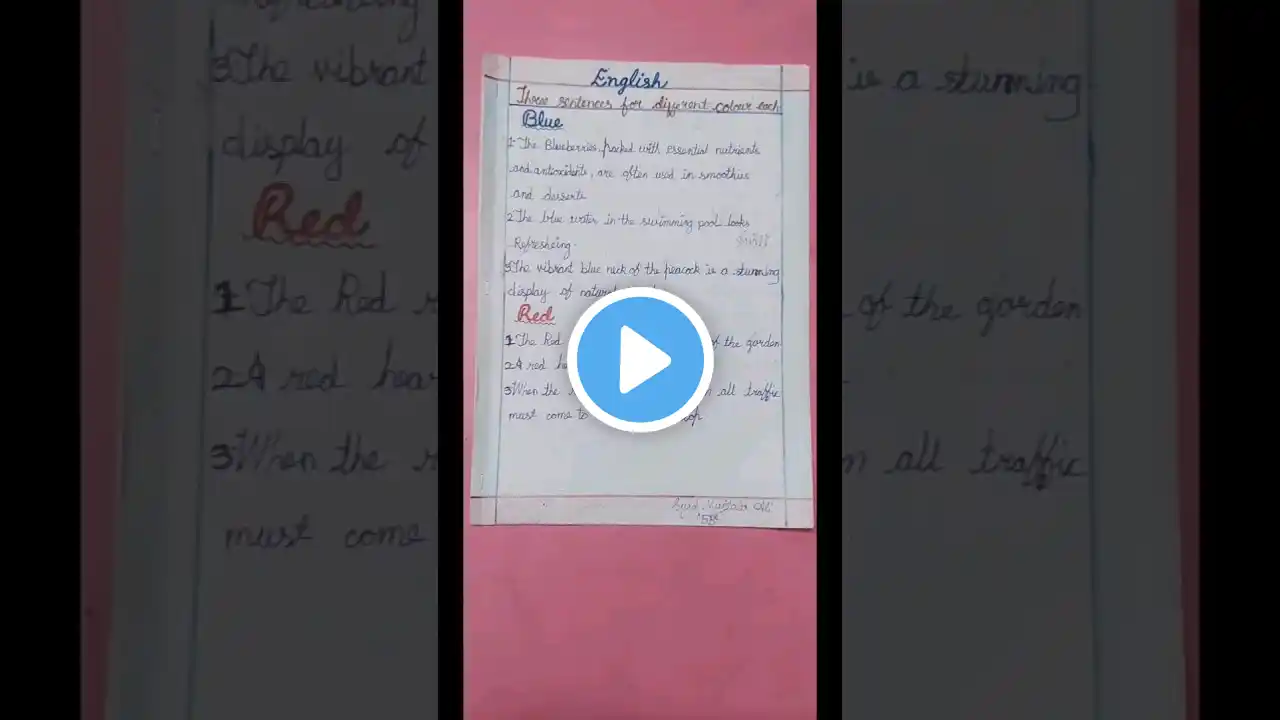 English
Three sentences for different colour each
Blue
1. The Blueberries, packed with essential nutrients
and antioxidents, are often used in smoothies
and desserts
2 The blue water in the swimming pool looks
Refresheing.
3 The vibrant blue neck of the peacock is a stunning
display of natur
Red
1 The Red of the garden
2 A red hea
3 When the all traffic
must come to stop
Syed Ali